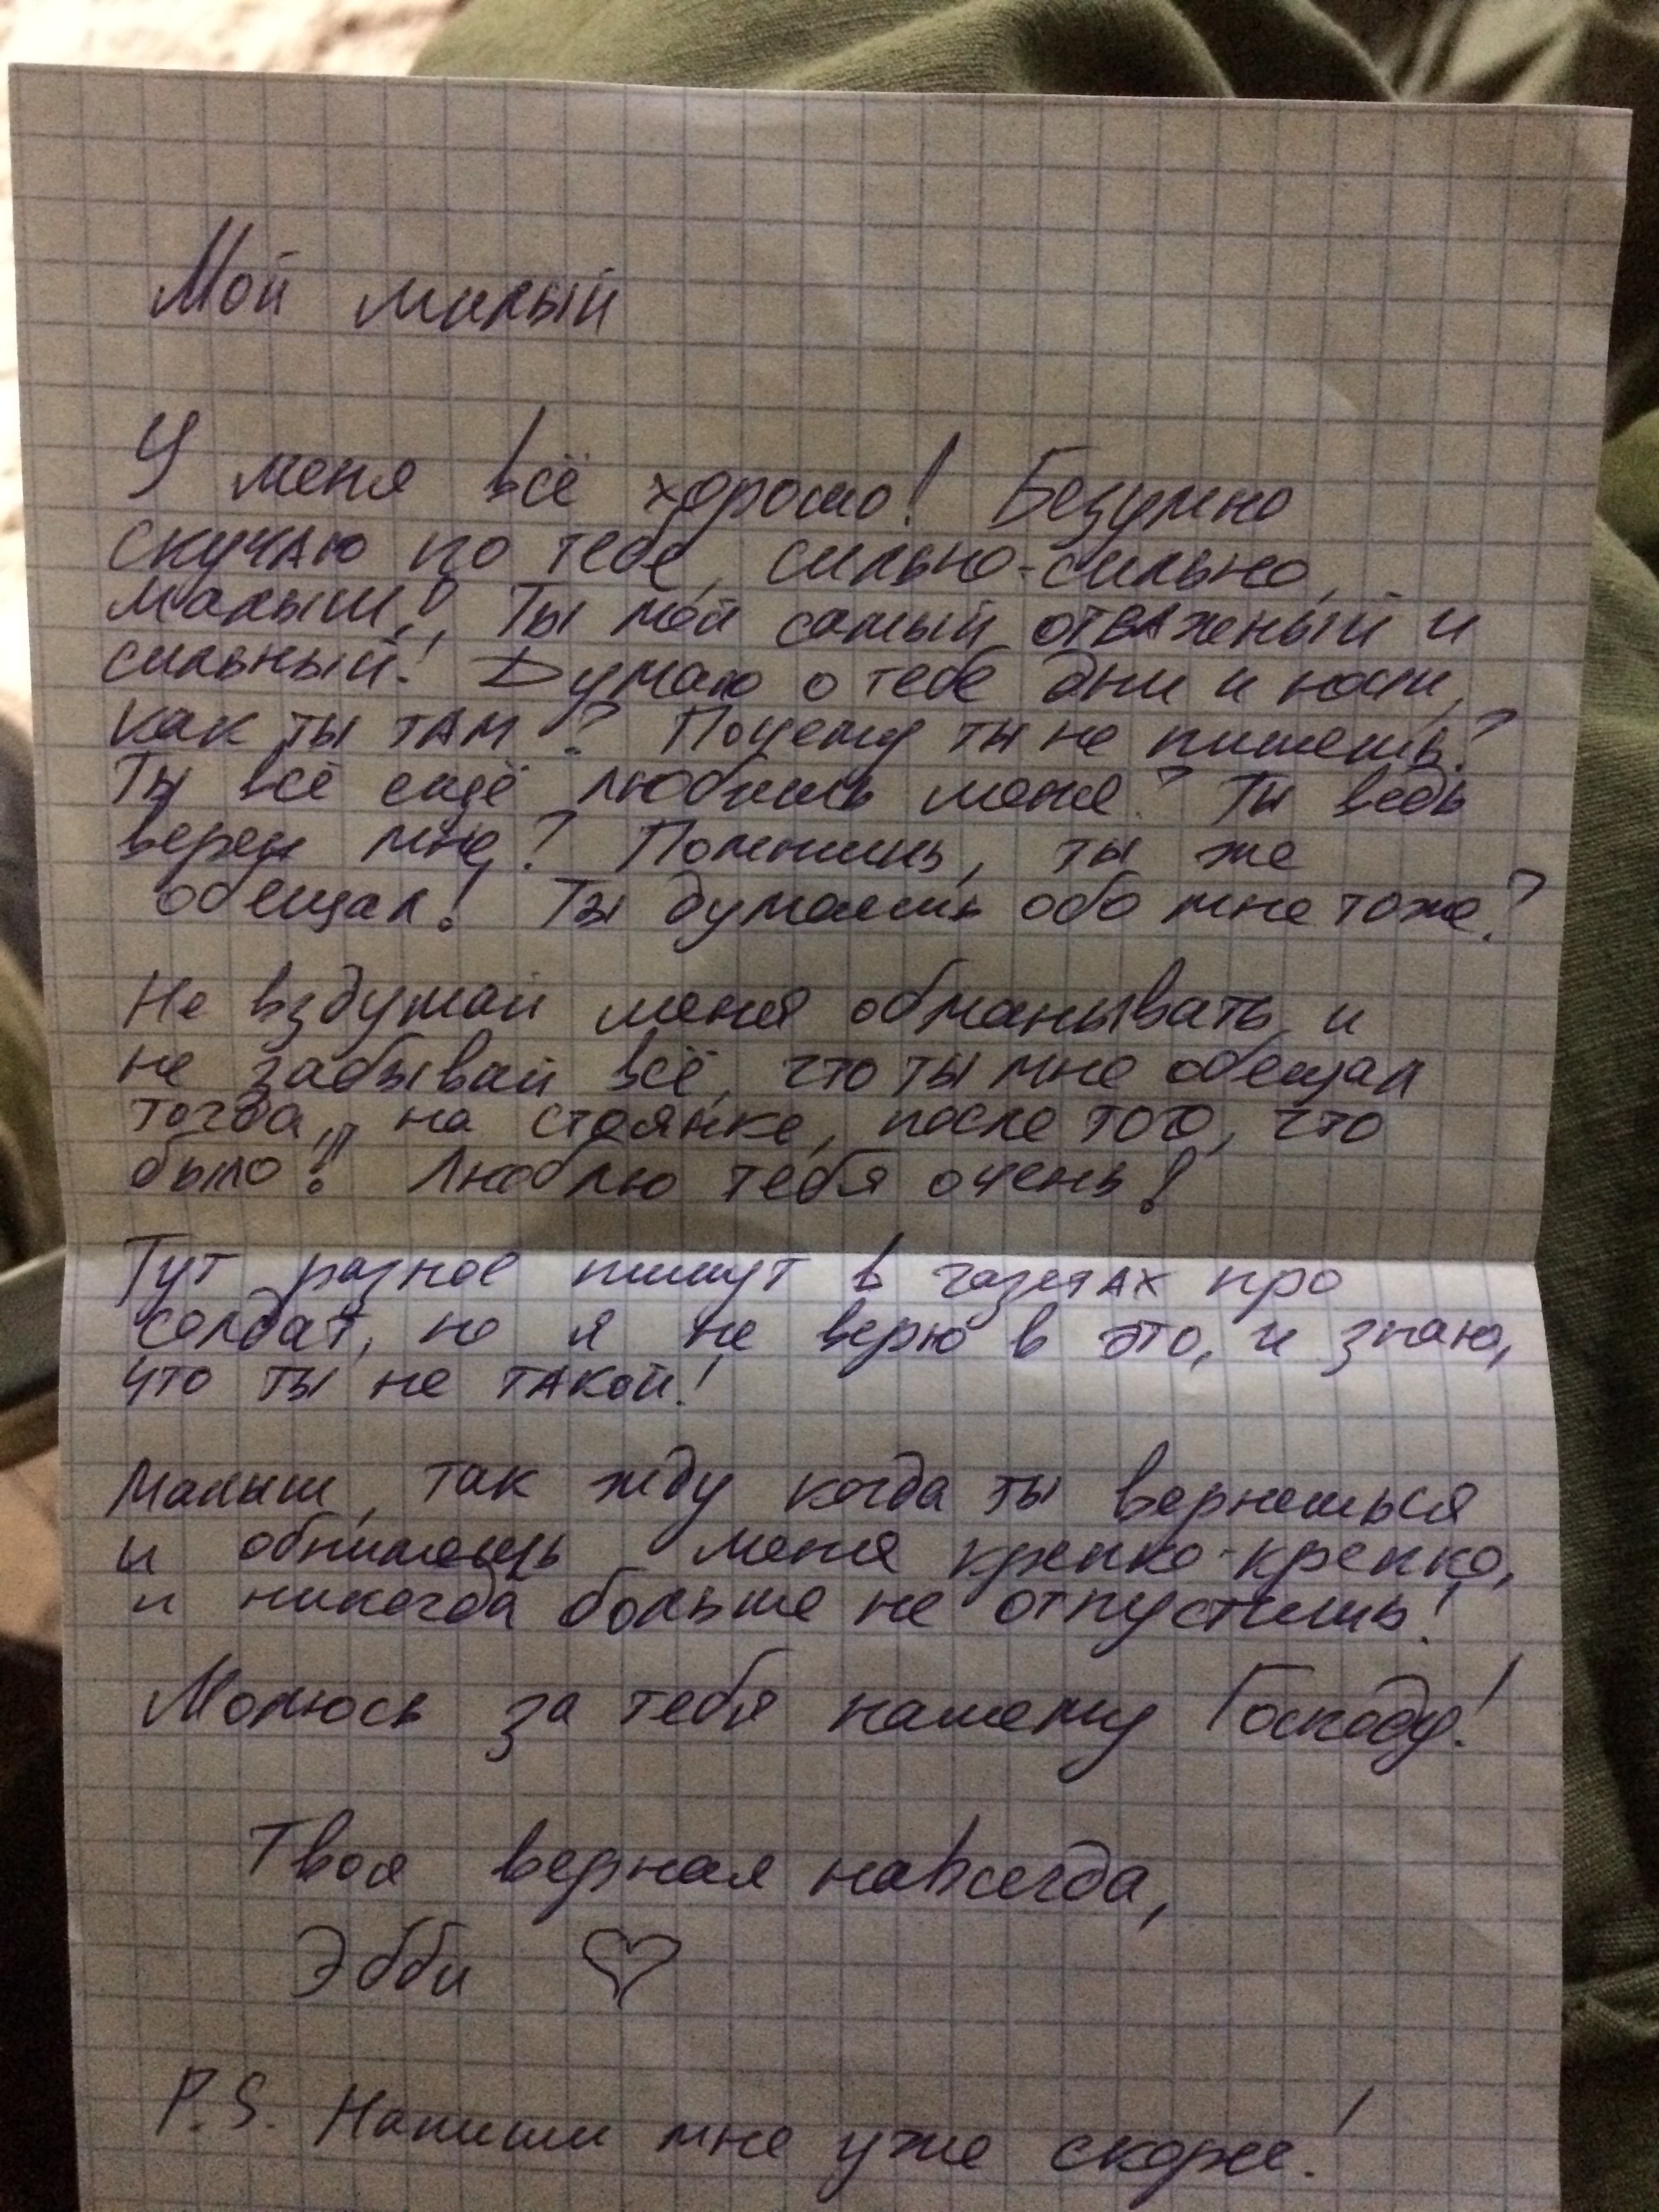 Мой милый
У меня всё хорошо! Безумно
скучаю по тебе, сильно-сильно,
малыш! Ты мой самый отважный и
сильный! Думаю о тебе дни и ночи,
как ты там? Почему ты не пишешь?
Ты всё ещё любишь меня? Ты ведь
верен мне? Помнишь, ты же
обещал! Ты думаешь обо мне тоже?
Не вздумай меня обманывать, и
не забывай всё, что ты мне обещал
тогда, на стоянке, после того, что
было! Люблю тебя очень!
Тут разное пишут в газетах про
солдат, но я не верю в это, и знаю,
что ты не такой!
Малыш, так жду когда ты вернешься
и обнимешь меня крепко-крепко,
и никогда больше не отпустишь!
Молюсь за тебя нашему Господу!
Твоя верная навсегда,
Эбби ♡
P.S. Напиши мне уже скорее!